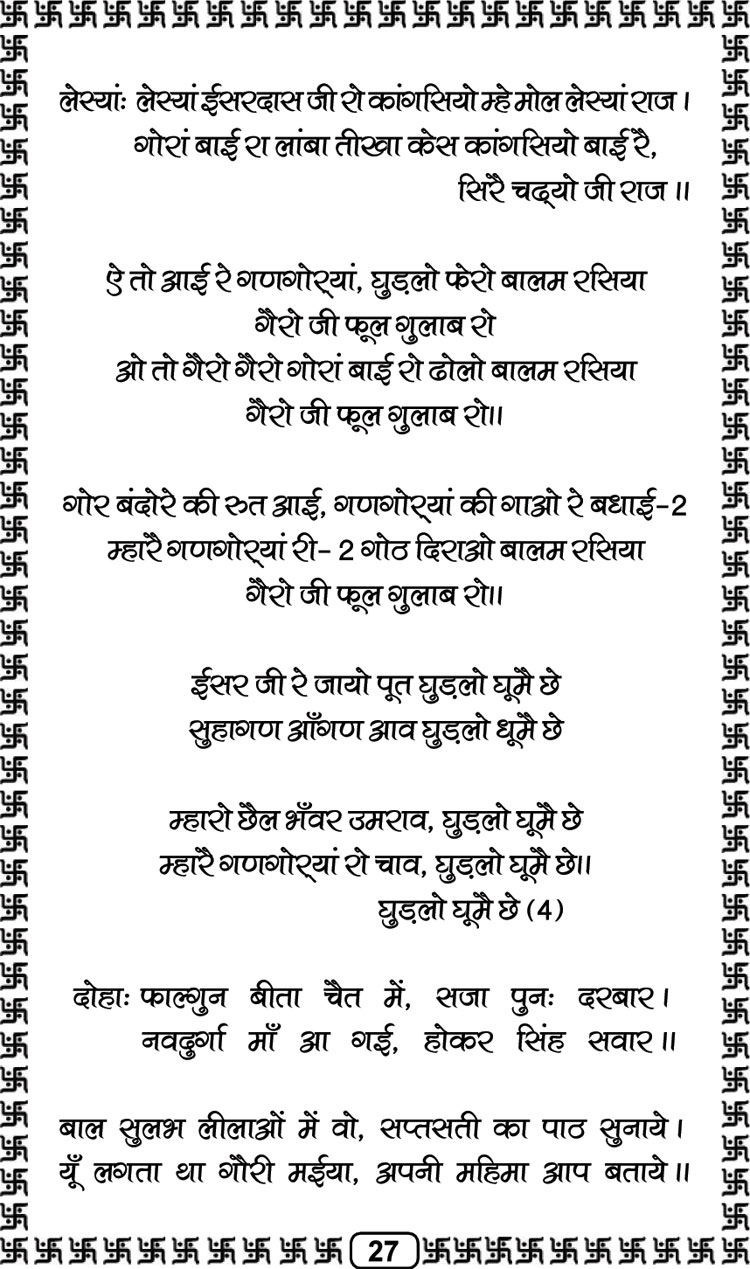 लेस्यांः लेस्यां ईसरदास जी रो कांगसियो म्हे मोल लेस्यां राज ।
गोरां बाई रा लांबा तीखा केस कांगसियो बाई रै,
सिरै चढ्यो जी राज ।।
ऐ तो आई रे गणगोर्‌यां, घुड़लो फेरो बालम रसिया
गैरो जी फूल गुलाब रो
ओ तो गैरो गैरो गोरां बाई रो ढोलो बालम रसिया
गैरो जी फूल गुलाब रो।।
गोर बंदोरे की रुत आई, गणगोर्‌यां की गाओ रे बधाई-2
म्हारै गणगोर्‌यां री- 2 गोठ दिराओ बालम रसिया
गैरो जी फूल गुलाब रो।।
ईसर जी रे जायो पूत घुड़लो घूमै छे
सुहागण आँगण आव घुड़लो धूमै छे
म्हारो छैल भँवर उमराव, घुड़लो घूमै छे
म्हारै गणगोर्‌यां रो चाव, घुड़लो घूमै छे।।
घुड़लो घूमै छे (4)
दोहाः फाल्गुन बीता चैत में, सजा पुनः दरबार ।
नवदुर्गा माँ आ गई, होकर सिंह सवार ।।
बाल सुलभ लीलाओं में वो, सप्तसती का पाठ सुनाये ।
यूँ लगता था गौरी मईया, अपनी महिमा आप बताये ।।
27